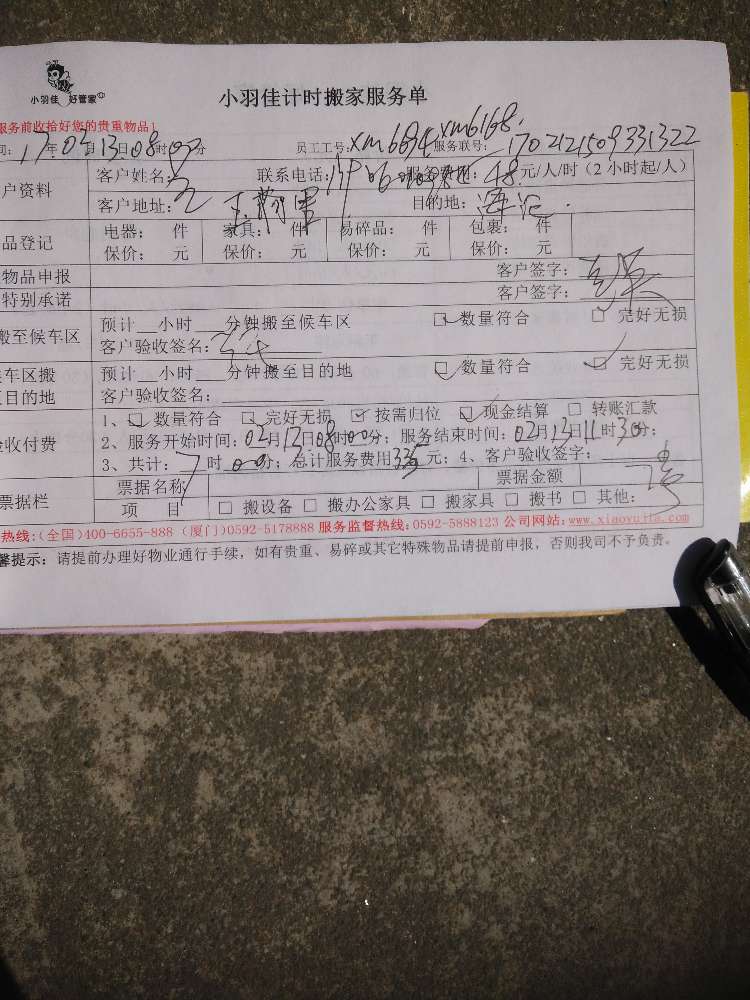 小羽佳 好管家
小羽佳计时搬家服务单
服务前收拾好您的贵重物品】
17年02月13日08时00分 员工工号:xm6694 xm6168. 服务联号: 1702121509331322
户资料 客户姓名: 联系电话: 48元/人/时（2小时起/人）
客户地址: 目的地:
品登记 电器: 件 家具: 件 易碎品: 件 包裹: 件
保价: 元 保价: 元 保价: 元 保价: 元
物品申报 客户签字:
特别承诺 客户签字:
搬至候车区 预计__小时___分钟搬至候车区 ☑数量符合 □完好无损
客户验收签名:
车区搬 预计__小时___分钟搬至目的地 ☑数量符合 ☑完好无损
目的地 客户验收签名:
收付费 1、☑数量符合 ☑完好无损 ☑按需归位 ☑现金结算 □转账汇款
2、服务开始时间:02月13日08时00分; 服务结束时间:02月13日11时30分;
3、共计:7时00分; 总计服务费用335元; 4、客户验收签字:
票据栏 票据名称 票据金额
项 目 □搬设备 □搬办公家具 □搬家具 □搬书 □其他:
热线:(全国)400-6655-888 (厦门)0592-5178888 服务监督热线: 0592-5888123 公司网站: www.xiaoyujia.com
馨提示: 请提前办理好物业通行手续，如有贵重、易碎或其它特殊物品请提前申报，否则我司不予负责。